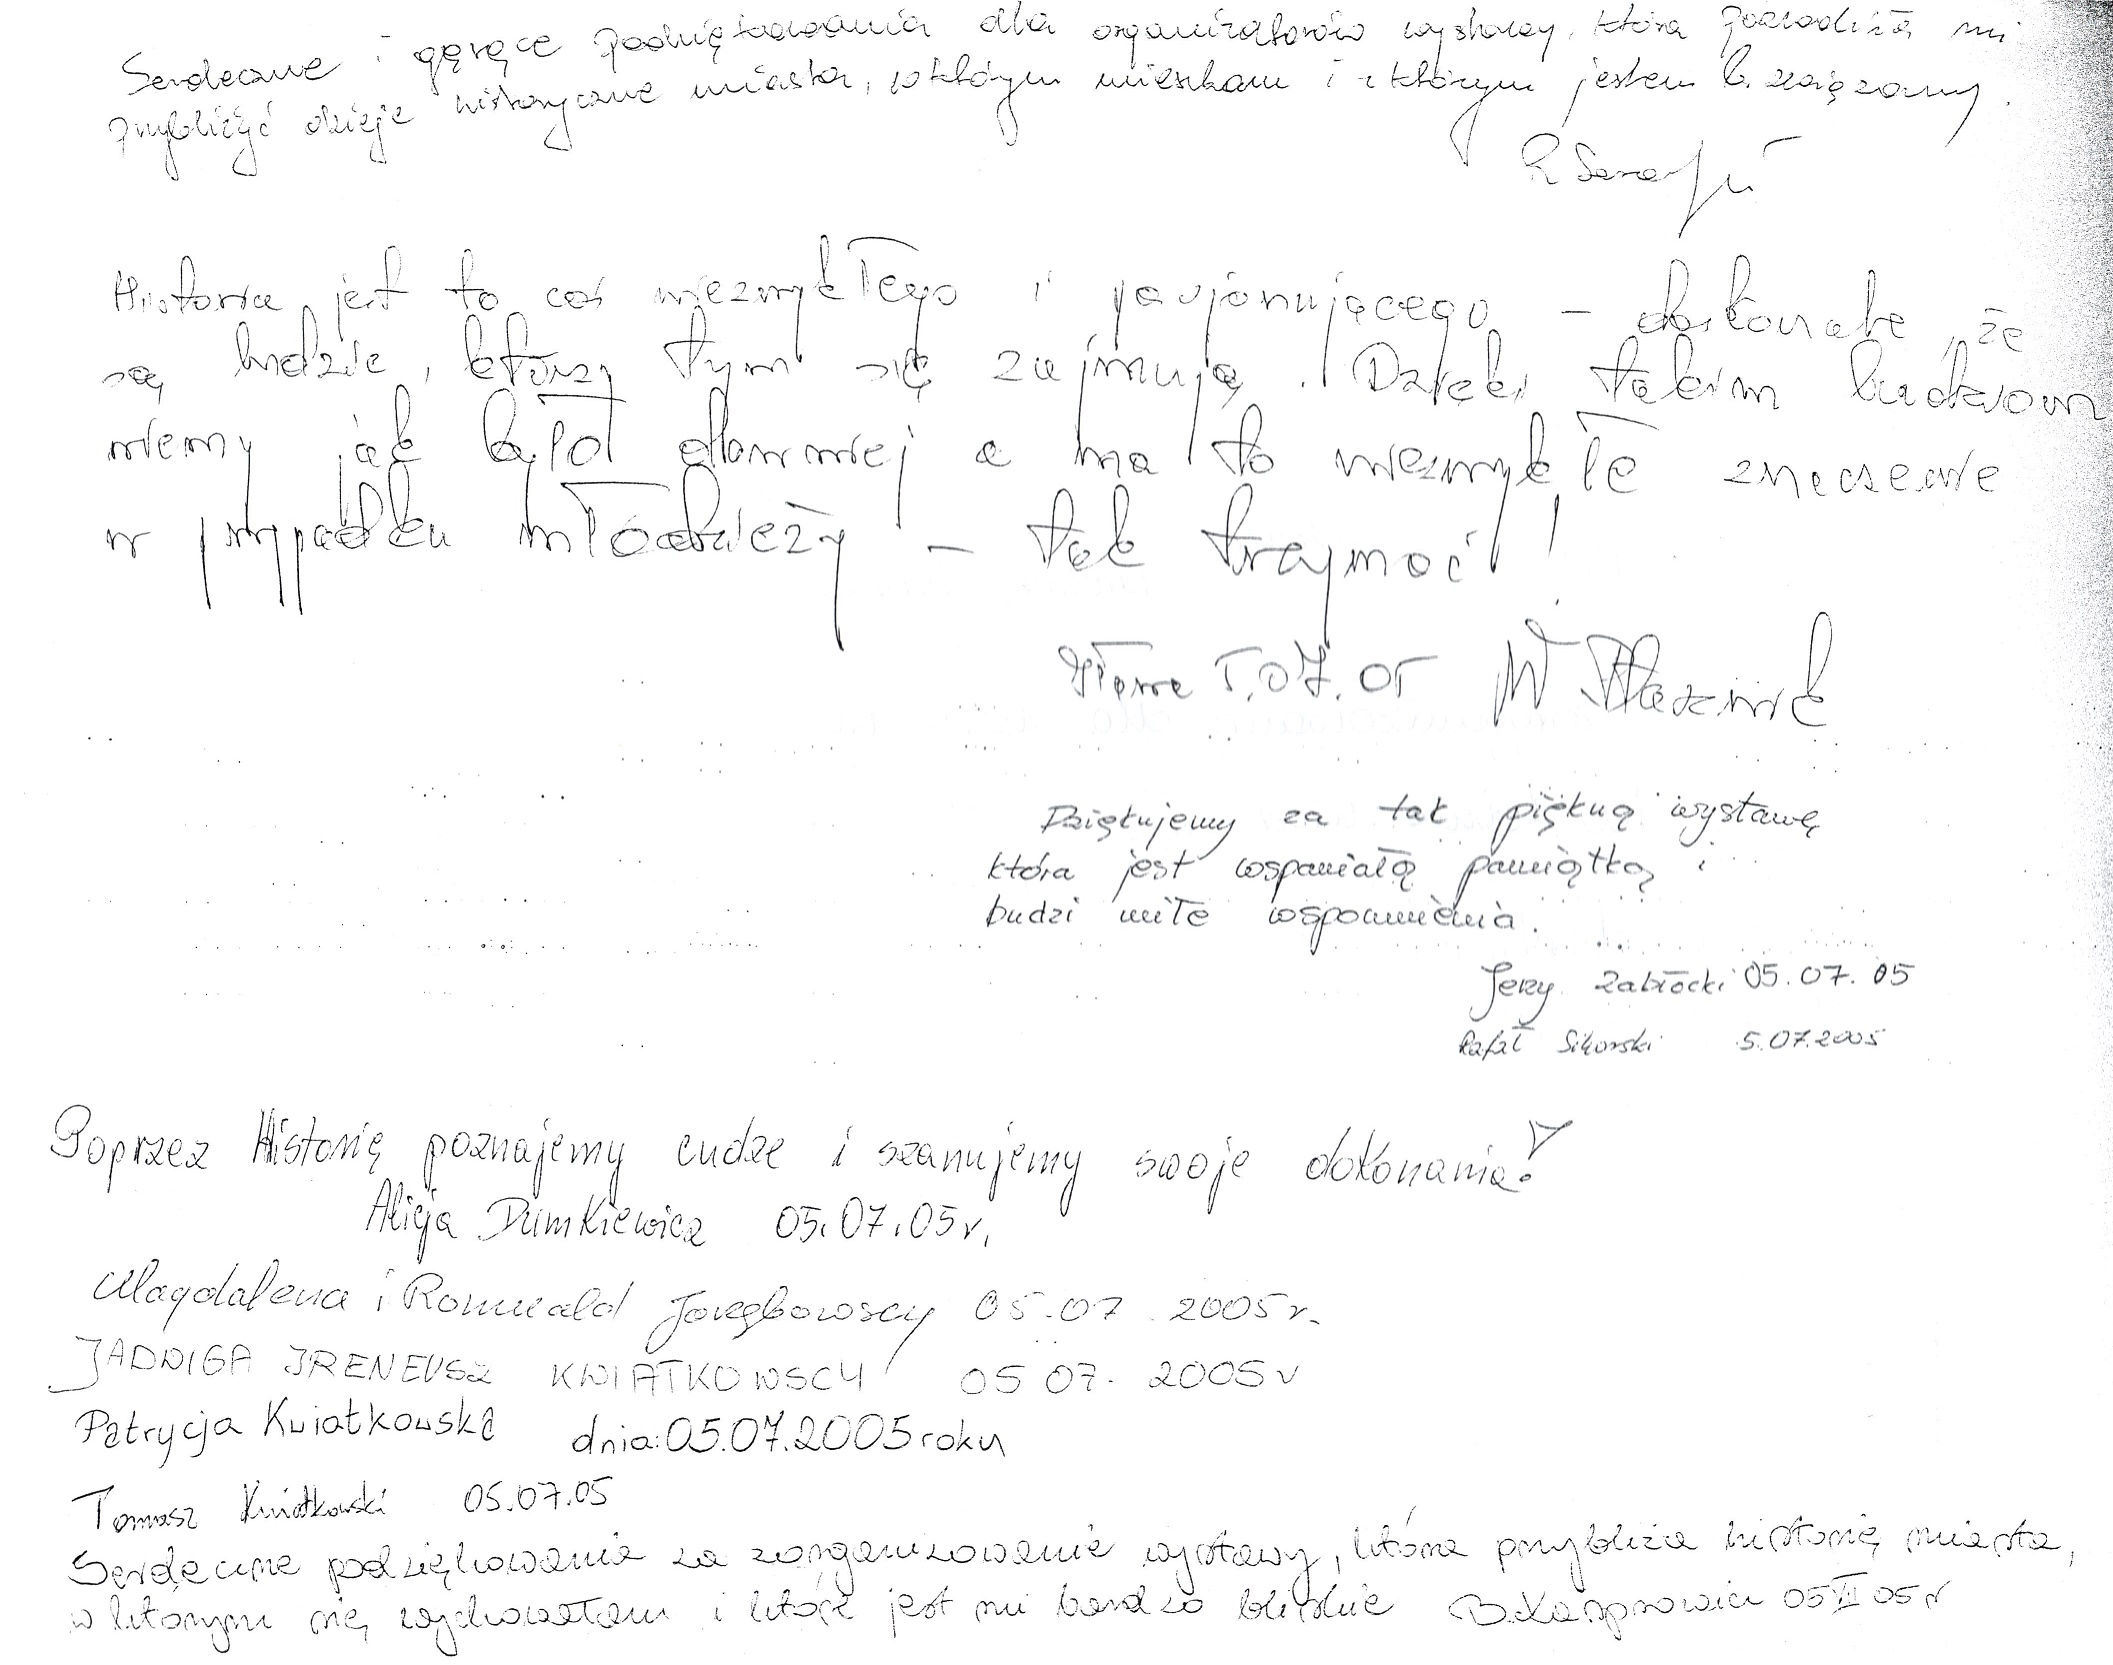 Serdeczne i gorące podziękowania dla organizatorów wystawy, która pozwoliła mi
przybliżyć dzieje historyczne miasta, w którym mieszkam i z którym jestem b. związany.
Historia jest to coś niezwykłego i pasjonującego – doskonale, że
są ludzie, którzy tym się zajmują. Dzięki takim ludziom
wiemy jak było dawniej a ma to niezwykłe znaczenie
w przypadku młodzieży – tak trzymać!
5.07.05 W
Dziękujemy za tak piękną wystawę
która jest wspaniałą pamiątką i
budzi miłe wspomnienia.
Jerzy Zabłocki 05.07.05
Rafał Sikorski 5.07.2005
Poprzez Historię poznajemy cudze i szanujemy swoje dokonania!
Alicja Dumkiewicz 05.07.05r.
Magdalena i Romuald 05.07.2005r.
JADWIGA IRENEUSZ KWIATKOWSCY 05 07. 2005r
Patrycja Kwiatkowska dnia:05.07.2005roku
Tomasz Kwiatkowski 05.07.05
Serdeczne podziękowania za zorganizowanie wystawy, która przybliża historię miasta,
w którym się wychowałam i które jest mi bardzo bliskie B.Kasprowicz 05 VII 05r